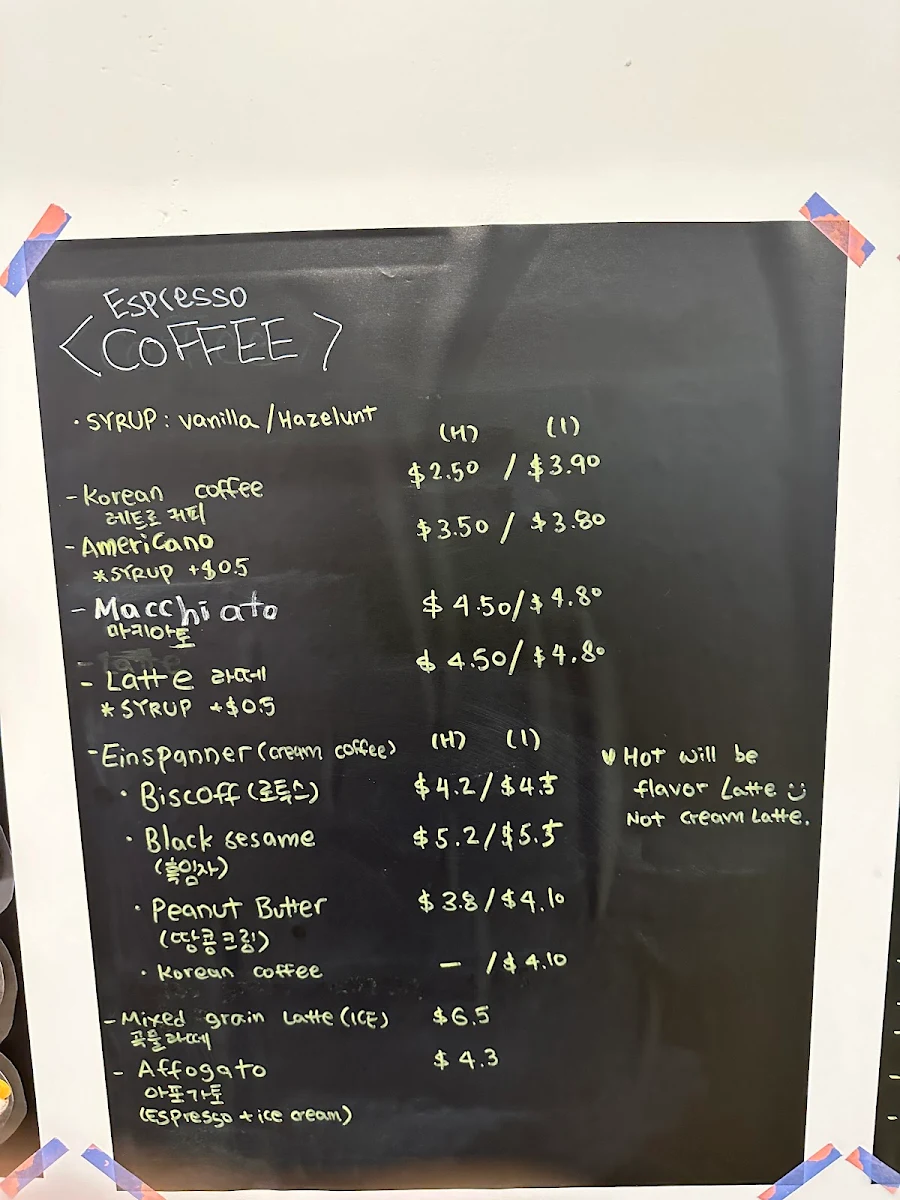 Espresso
<COFFEE>
· SYRUP : vanilla / Hazelunt
(H) (I)
- Korean coffee $2.50 / $3.90
레트로 커피
- Americano $3.50 / $3.80
*SYRUP +$0.5
- Macchiato $4.50/$4.80
마키아토
- Latte 라떼 $4.50/$4.80
*SYRUP +$0.5
- Einspanner (cream coffee) (H) (I)
· Biscoff (로투스) $4.2/$4.5
· Black sesame $5.2/$5.5
(흑임자)
· Peanut Butter $3.8/$4.10
(땅콩크림)
· Korean coffee - /$4.10
- Mixed grain Latte (ICE) $6.5
곡물라떼
- Affogato $4.3
아포가토
(Espresso + ice cream)
♥ Hot will be
flavor Latte ☺
Not cream Latte.